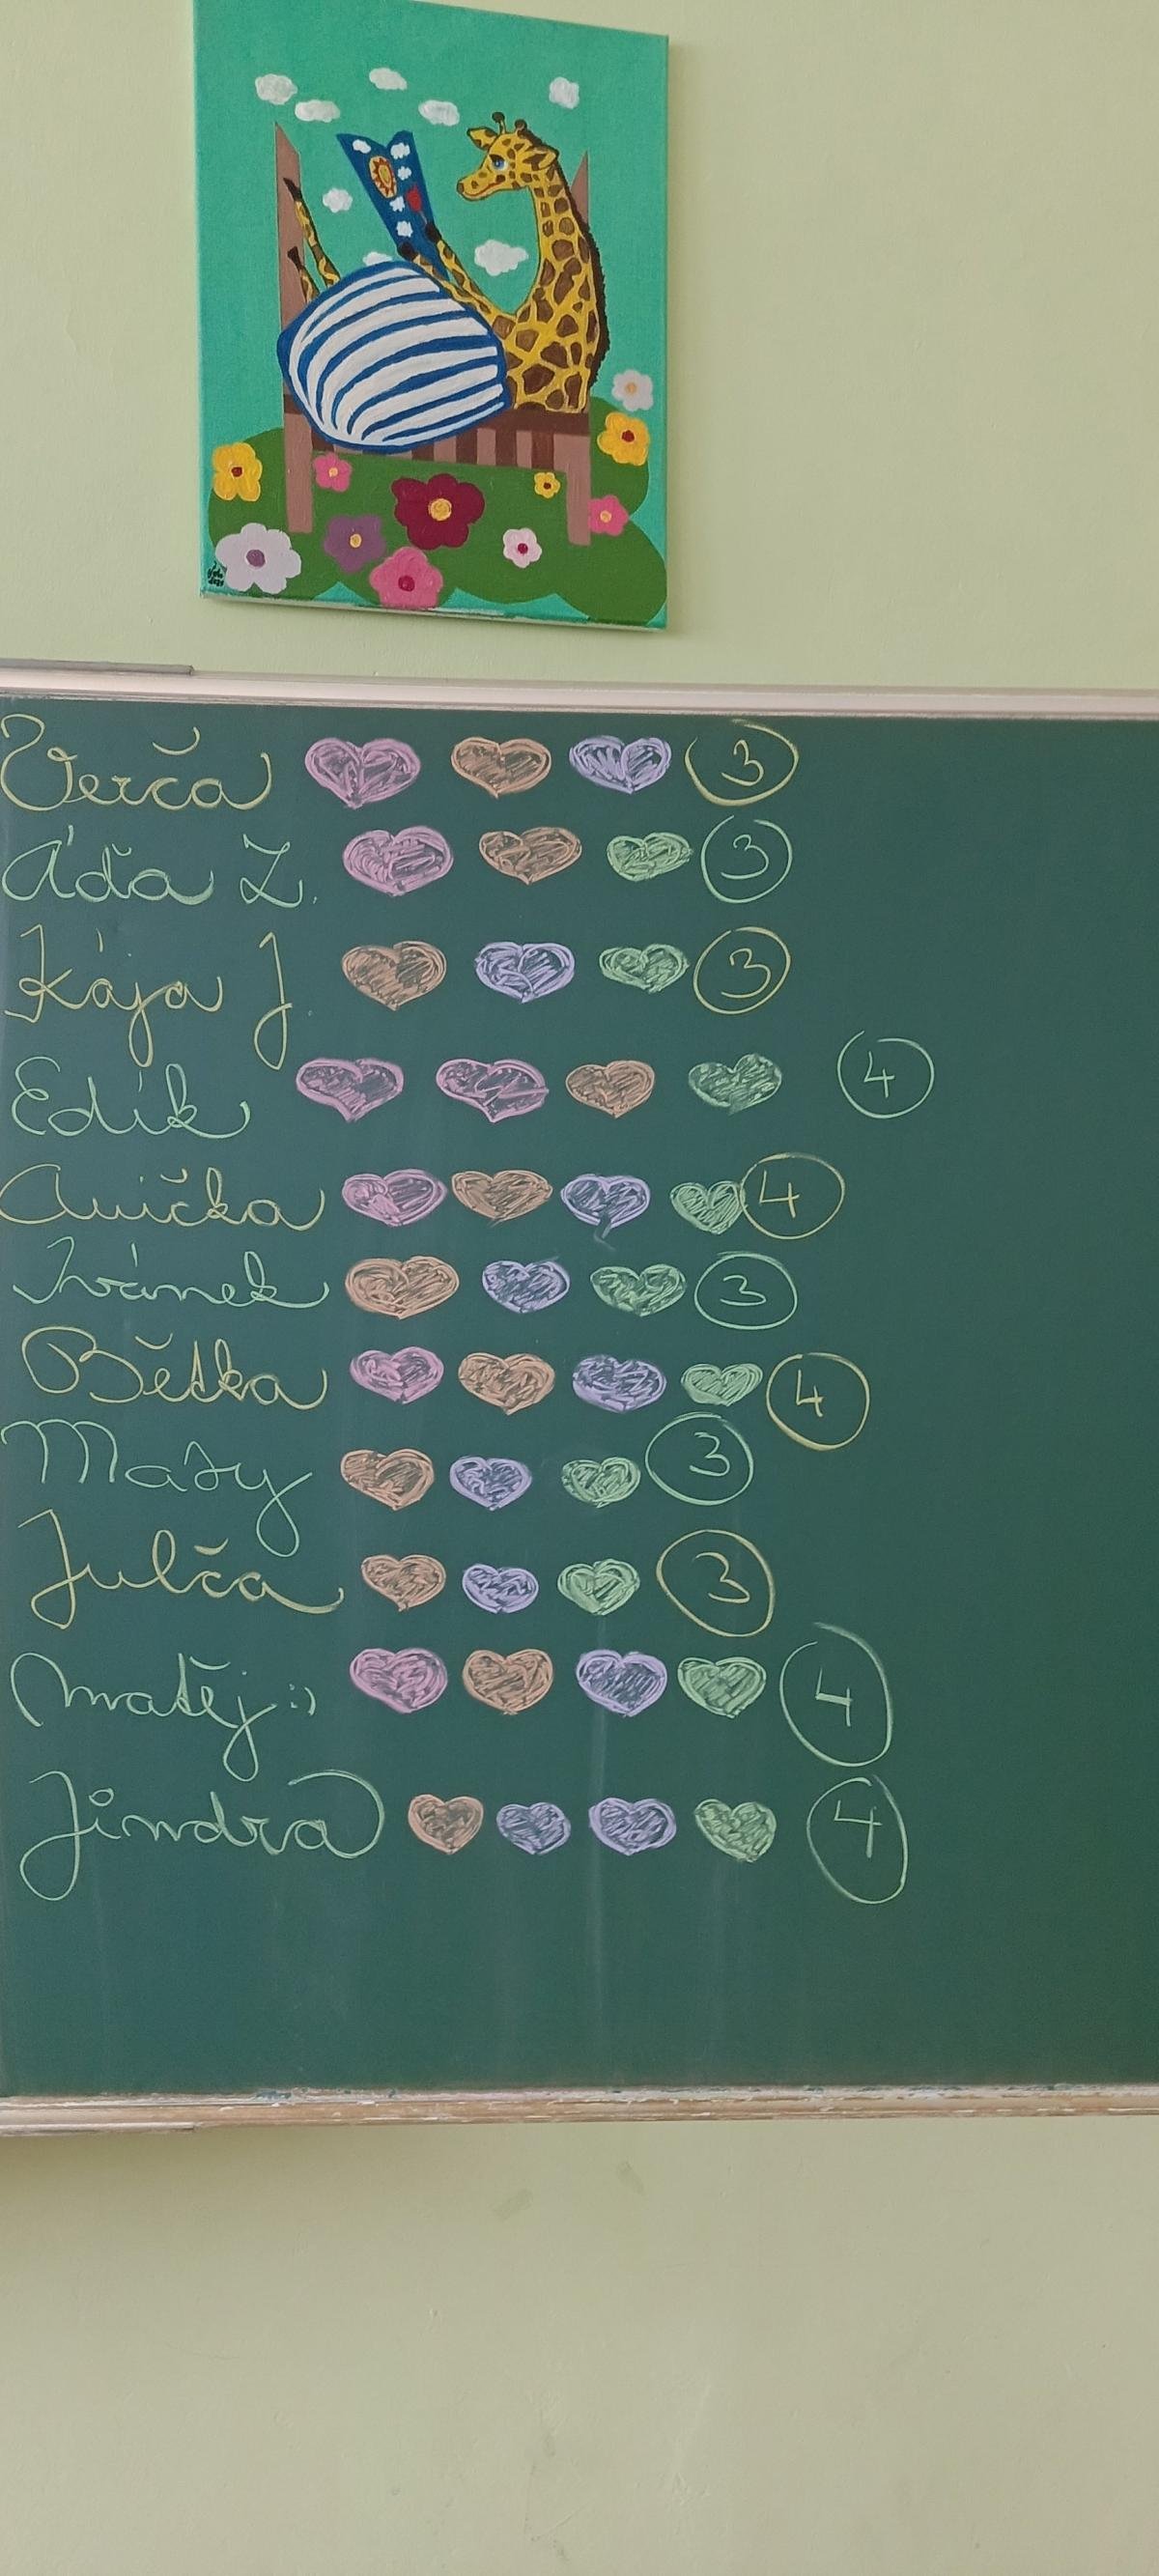 Verča 3
Áďa Z. 3
Kája J. 3
Edík 4
Anička 4
Ivánek 3
Bětka 4
Maty 3
Julča 3
Matěj :) 4
Jindra 4